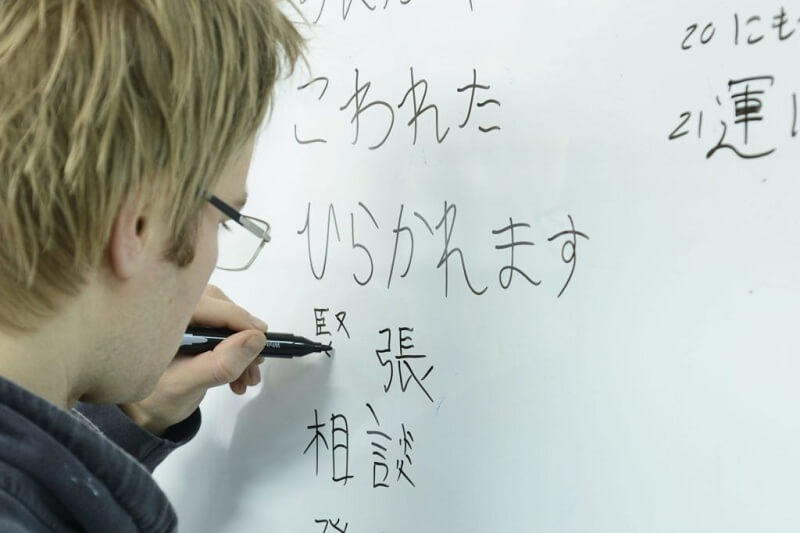 こわれた
ひらかれます
張
相談
20 にも
21 運